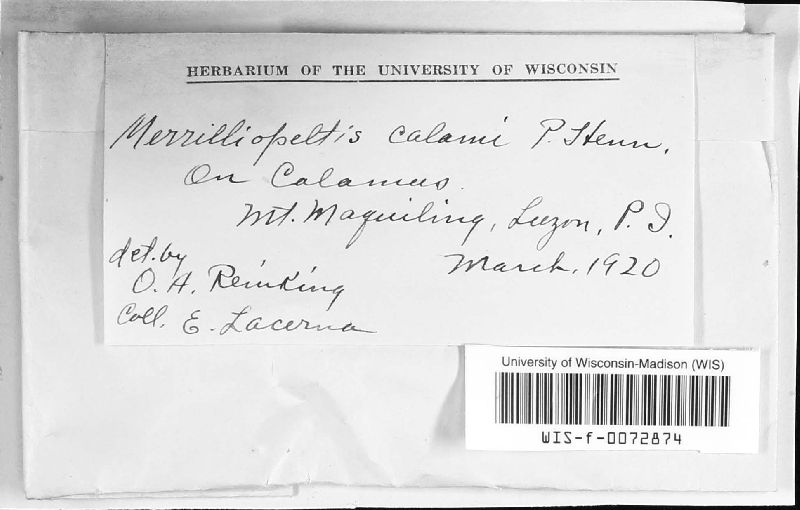 HERBARIUM OF THE UNIVERSITY OF WISCONSIN
Merrilliopeltis calami P. Henn.
On Calamus.
Mt. Maquiling, Luzon, P. I.
March, 1920
det. by
O. A. Reinking
Coll. E. Lacerna
University of Wisconsin-Madison (WIS)
WIS-f-0072874